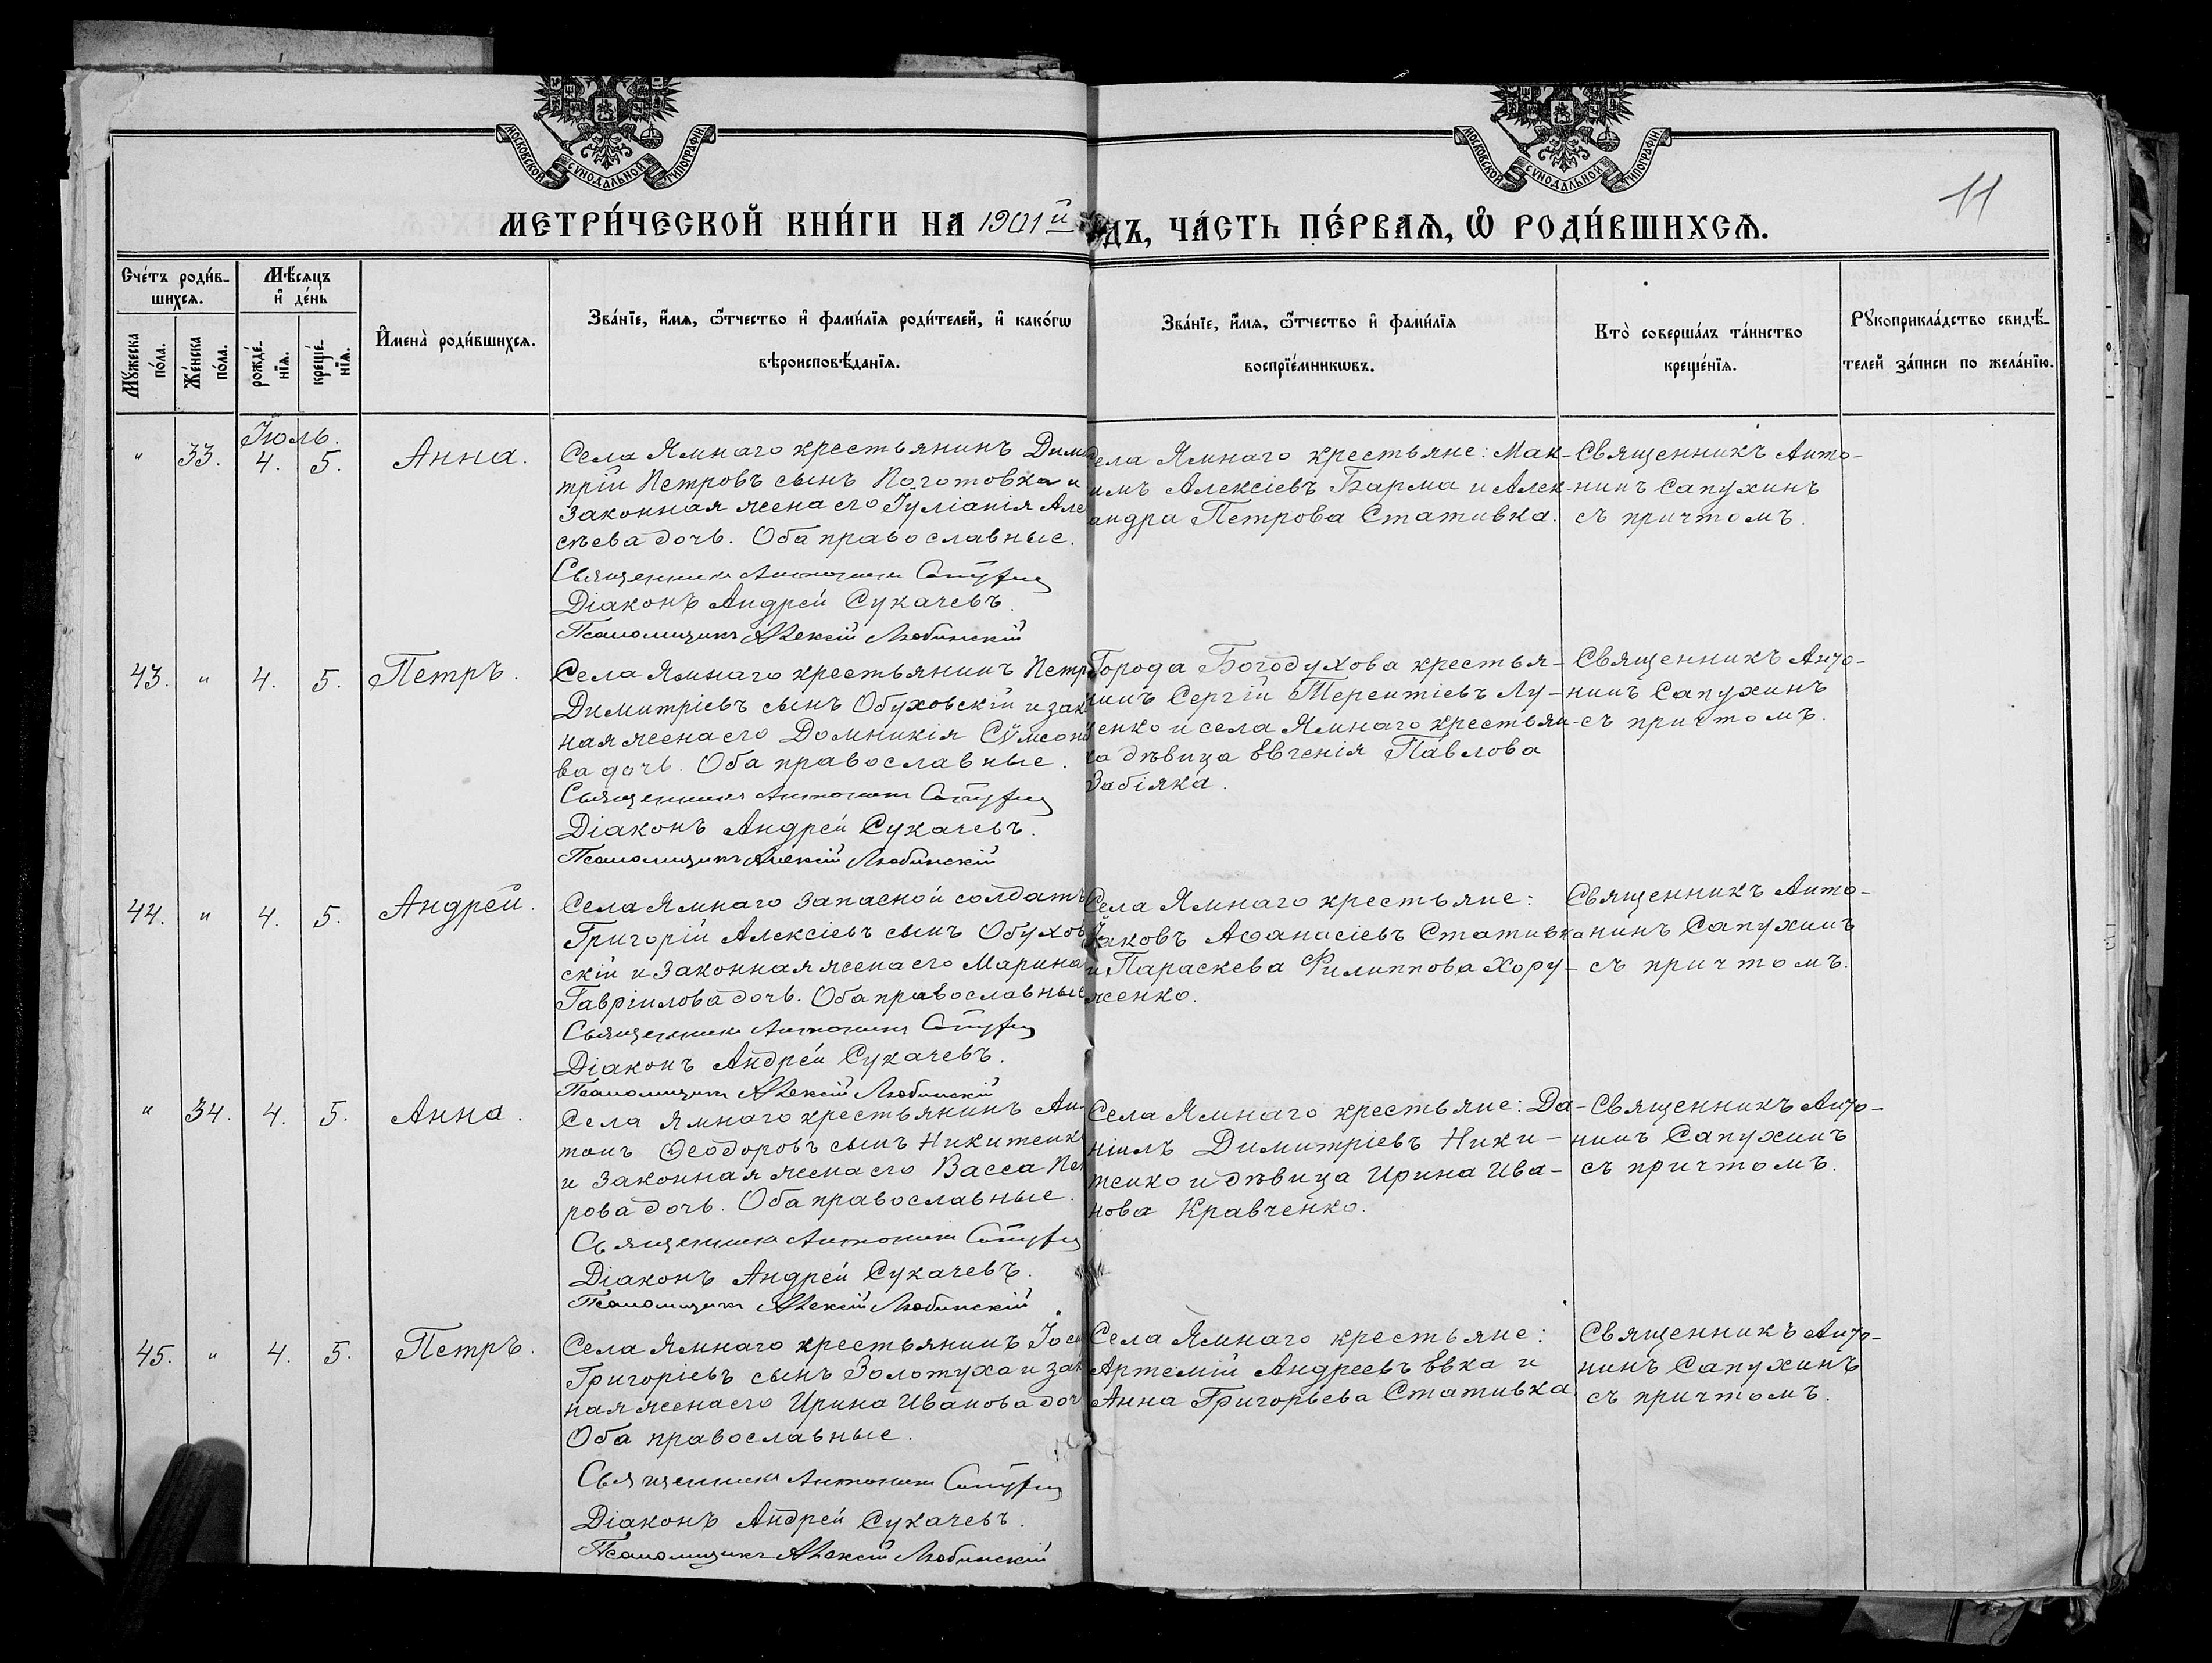 МОСКОВСКОЙ СУНОДАЛЬНОЙ ТИПОГРАФІИ.
МОСКОВСКОЙ СУНОДАЛЬНОЙ ТИПОГРАФІИ.
11
МЕТРИ́ЧЕСКОЙ КНИ́ГИ НА 1901й
ДЪ, ЧА́СТЬ ПЕ́РВАѦ, Ѡ҆ РОДИ́ВШИХСѦ.
Сче́тъ роди́в-
шихсѧ.
Му́жеска по́ла.
Же́нска по́ла.
Мѣ́сѧцъ
и҆ де́нь
рожде́-нїѧ.
креще́-нїѧ.
И҆мена̀ роди́вшихсѧ.
Зва́нїе, и҆́мѧ, ѻ҆́тчество и҆ фами́лїѧ роди́телей, и҆ како́гѡ
вѣроисповѣ́данїѧ.
Зва́нїе, и҆́мѧ, ѻ҆́тчество и҆ фами́лїѧ
воспрїе́мникѡвъ.
Кто̀ соверша́лъ та́инство
креще́нїѧ.
Рꙋкоприкла́дство свидѣ́-
телей за́писи по жела́нїю.
Іюль.
" 33. 4. 5. Анна.
Села Ямнаго крестьянинъ Дим
трій Петровъ сынъ Поготовка и
законная жена его Іуліанія Але
сѣева дочь. Оба православные.
Священникъ Антонинъ Сапухин
Діаконъ Андрей Сукачевъ.
Псаломщикъ Алексій Любинскій
Села Ямнаго крестьяне: Мак-
имъ Алексіевъ Барма и Алек-
андра Петрова Стативка.
Священникъ Анто-
нинъ Сапухинъ
съ причтомъ.
43. " 4. 5. Петръ.
Села Ямнаго крестьянинъ Петр
Димитріевъ сынъ Обуховскій и зак
ная жена его Домникія Сѵмеон
ва дочь. Оба православные.
Священникъ Антонинъ Сапухин
Діаконъ Андрей Сукачевъ.
Псаломщикъ Алексій Любинскій
Города Богодухова крестья-
нинъ Сергій Терентіевъ Лу-
ценко и села Ямнаго крестьян-
ка дѣвица Евгенія Павлова
Забіяка.
Священникъ Анто-
нинъ Сапухинъ
съ причтомъ.
44. " 4. 5. Андрей.
Села Ямнаго запасной солдатъ
Григорій Алексіевъ сынъ Обухов
скій и законная жена его Марина
Гавріилова дочь. Оба православные
Священникъ Антонинъ Сапухин
Діаконъ Андрей Сукачевъ.
Псаломщикъ Алексій Любинскій
Села Ямнаго крестьяне:
Іаковъ Аѳанасіевъ Стативка
и Параскева Филиппова Хору-
женко.
Священникъ Анто-
нинъ Сапухинъ
съ причтомъ.
" 34. 4. 5. Анна.
Села Ямнаго крестьянинъ Ан-
тонъ Ѳеодоровъ сынъ Никитенк
и законная жена его Васса Пет
рова дочь. Оба православные.
Священникъ Антонинъ Сапухин
Діаконъ Андрей Сукачевъ.
Псаломщикъ Алексій Любинскій
Села Ямнаго крестьяне: Да-
ніилъ Димитріевъ Ники-
тенко и дѣвица Ирина Ива-
нова Кравченко.
Священникъ Анто-
нинъ Сапухинъ
съ причтомъ.
45. " 4. 5. Петръ.
Села Ямнаго крестьянинъ Іоси
Григоріевъ сынъ Золотуха и зак
ная жена его Ирина Иванова доч
Оба православные.
Священникъ Антонинъ Сапухин
Діаконъ Андрей Сукачевъ.
Псаломщикъ Алексій Любинскій
Села Ямнаго крестьяне:
Артемій Андреевъ Евка и
Анна Григорьева Стативка.
Священникъ Анто-
нинъ Сапухинъ
съ причтомъ.